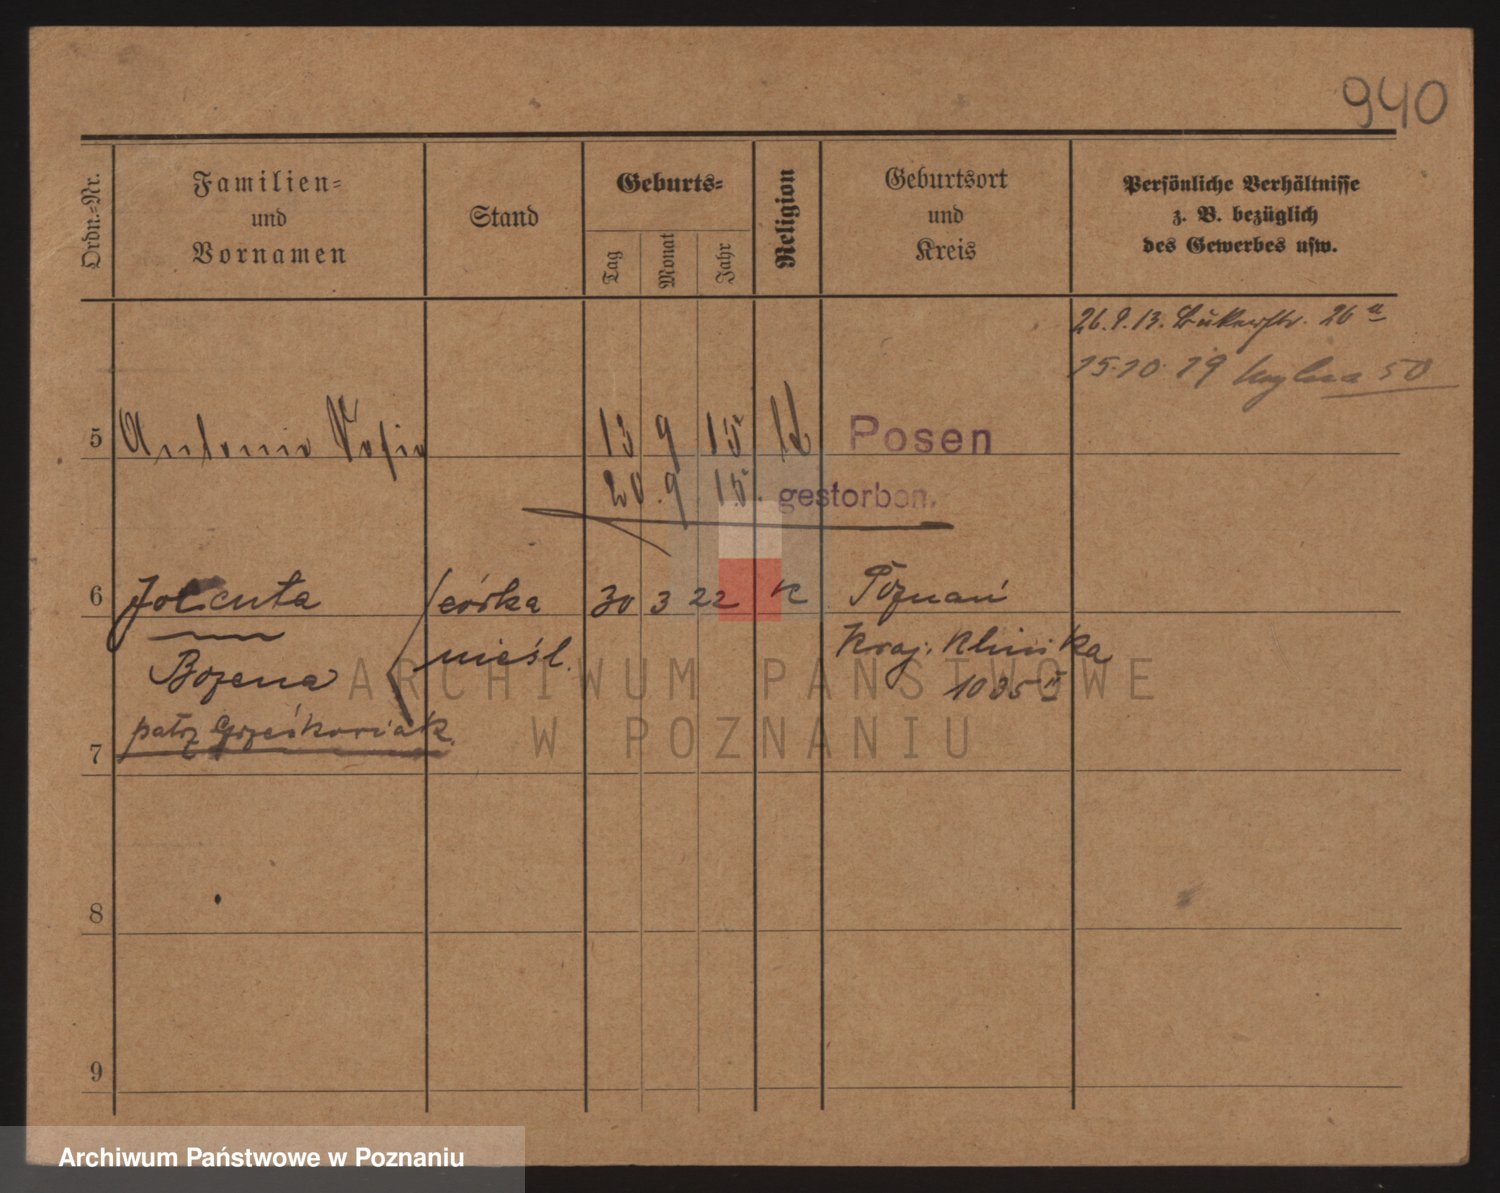 940
Ordn.-Nr.
Familien-
und
Vornamen
Stand
Geburts-
Tag
Monat
Jahr
Religion
Geburtsort
und
Kreis
Persönliche Verhältnisse
z. B. bezüglich
des Gewerbes usw.
26. 9. 13. 26 a
15.10.19 50
5 13 9 15 Posen
20. 9. 15. gestorben.
6 Jolenta córka 30 3 22 K Poznań
Bożena nieśl. Kraj. Klinika
1035
patrz Grześkowiak.
7
8
9
ARCHIWUM PAŃSTWOWE
W POZNANIU
Archiwum Państwowe w Poznaniu